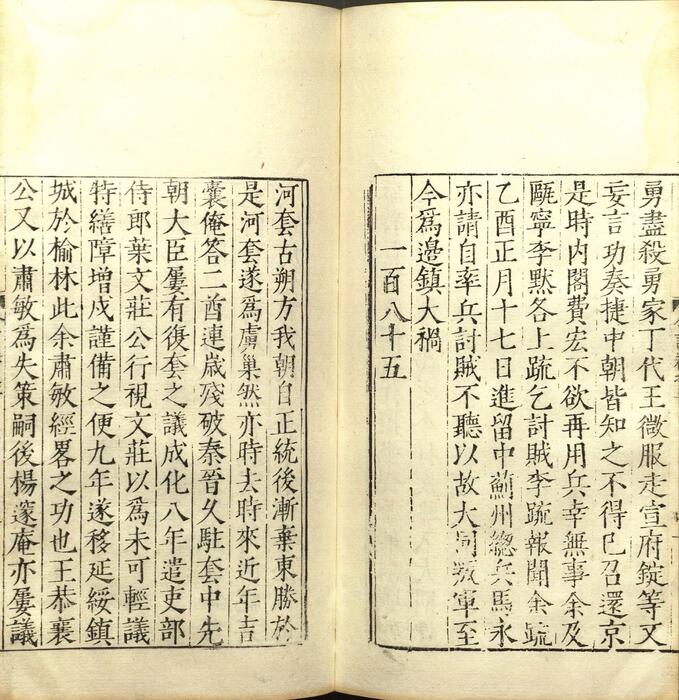 勇盡殺勇家丁代王微服走宣府錠等文
妄言功奏捷中朝皆知之不得已召還京
是時內閣費宏不欲再用兵幸無事余及
甌寧李黙各上疏乞討賊李疏報聞余疏
乙酉正月十七日進留中薊州總兵馬永
亦請自率兵討賊不聽以故大同叛軍至
今爲邊鎮大禍
一百八十五
河套古朔方我朝自正統後漸棄東勝於
是河套遂爲虜巢然亦時去時來近年吉
囊俺答二酋連歲殘破秦晉久駐套中先
朝大臣屢有復套之議成化八年遣吏部
侍郎葉文莊公行視文莊以爲未可輕議
特繕障增戍謹備之便九年遂移延綏鎮
城於榆林此余肅敏經畧之功也王恭襄
公又以肅敏爲失策嗣後楊邃庵亦屢議